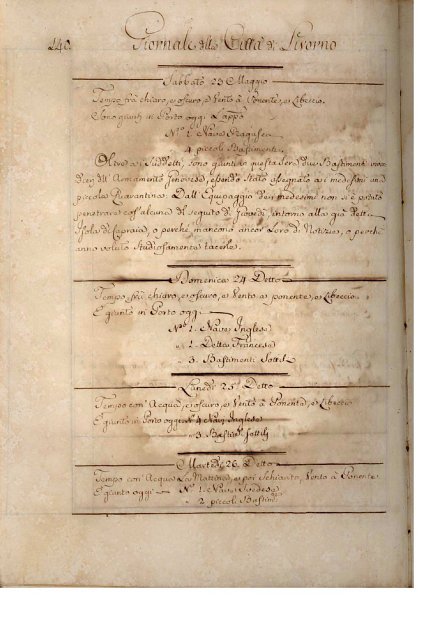 240
Giornale della Città di Livorno
Sabbato 23 Maggio
Tempo frà chiaro, e oscuro, e Vento à Ponente, e Libeccio.
Sono giunti in Porto oggi
N.º 1. Nave Ragusea
4 piccoli Bastimenti.
Oltre a i Suddetti, sono giunti in questa Sera due Bastimenti
dell'Armamento Genovese, essendo stato assegnato a i medesimi un
piccola Quarantina. Dall'Equipaggio dei medesimi non si è potuto
penetrare cos'alcuna di seguito di Giaordi, intorno alla già detta
Isola di Capraia, o perche mancano ancor Loro di Notizie, o perchè
anno voluto Studiosamente tacerle.
Domenica 24 Detto
Tempo frà chiaro, e oscuro, e Vento a ponente, e Libeccio
E giunto in Porto oggi
N.º 1. Nave Inglese
1. Detta Francese
3. Bastimenti Sottili
Lunedì 25 Detto
Tempo con Acqua, e oscuro, e Vento à Ponente, e Libeccio
E giunto in Porto oggi N.º 4 Navi Inglese
3 Bastim.ti Sottili
Martedì 26 Detto
Tempo con Acqua La Mattina, e poi Schiarito, Vento à Ponente
E giunto oggi N.º 1. Nave Svedese
2 piccoli Bastim.ti